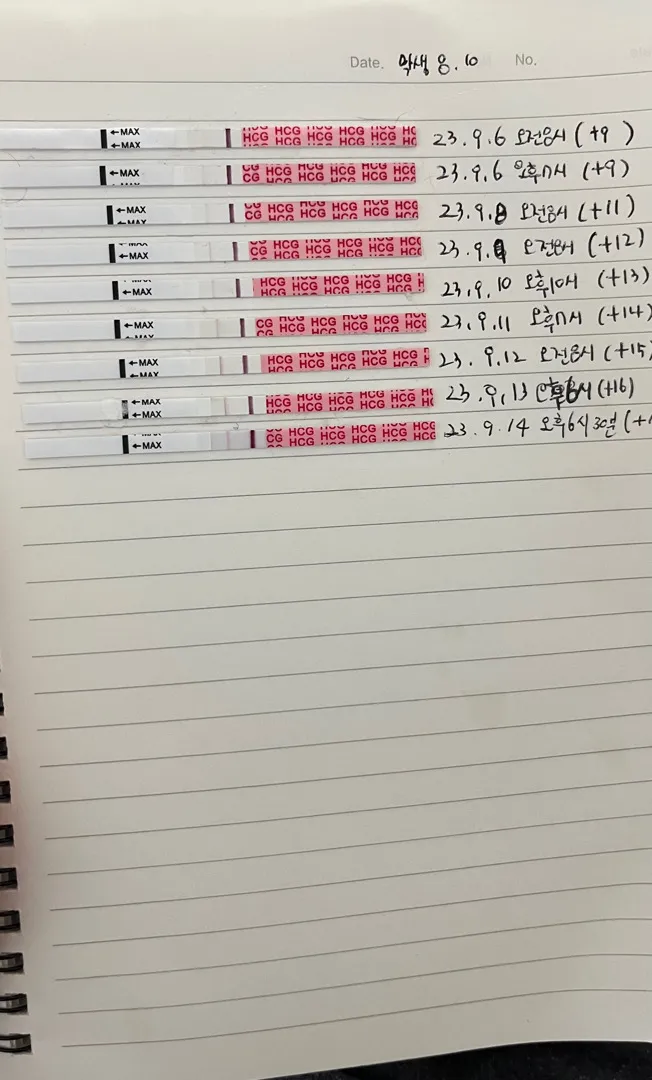 Date. 막생 8.10 No.
←MAX ←MAX HCG HCG HCG HCG HCG 23.9.6 오전8시 (+9)
←MAX HCG HCG HCG HCG HCG 23.9.6 오후11시 (+9)
←MAX CG HCG HCG HCG HCG 23.9.8 오전8시 (+11)
←MAX CG HCG HCG HCG HCG 23.9.9 오전8시 (+12)
←MAX HCG HCG HCG HCG 23.9.10 오후10시 (+13)
←MAX CG HCG HCG HCG HCG 23.9.11 오후11시 (+14)
←MAX HCG HCG HCG HCG 23.9.12 오전8시 (+15)
←MAX ←MAX HCG HCG HCG HCG 23.9.13 (+16)
←MAX CG HCG HCG HCG HCG 23.9.14 오후6시30분